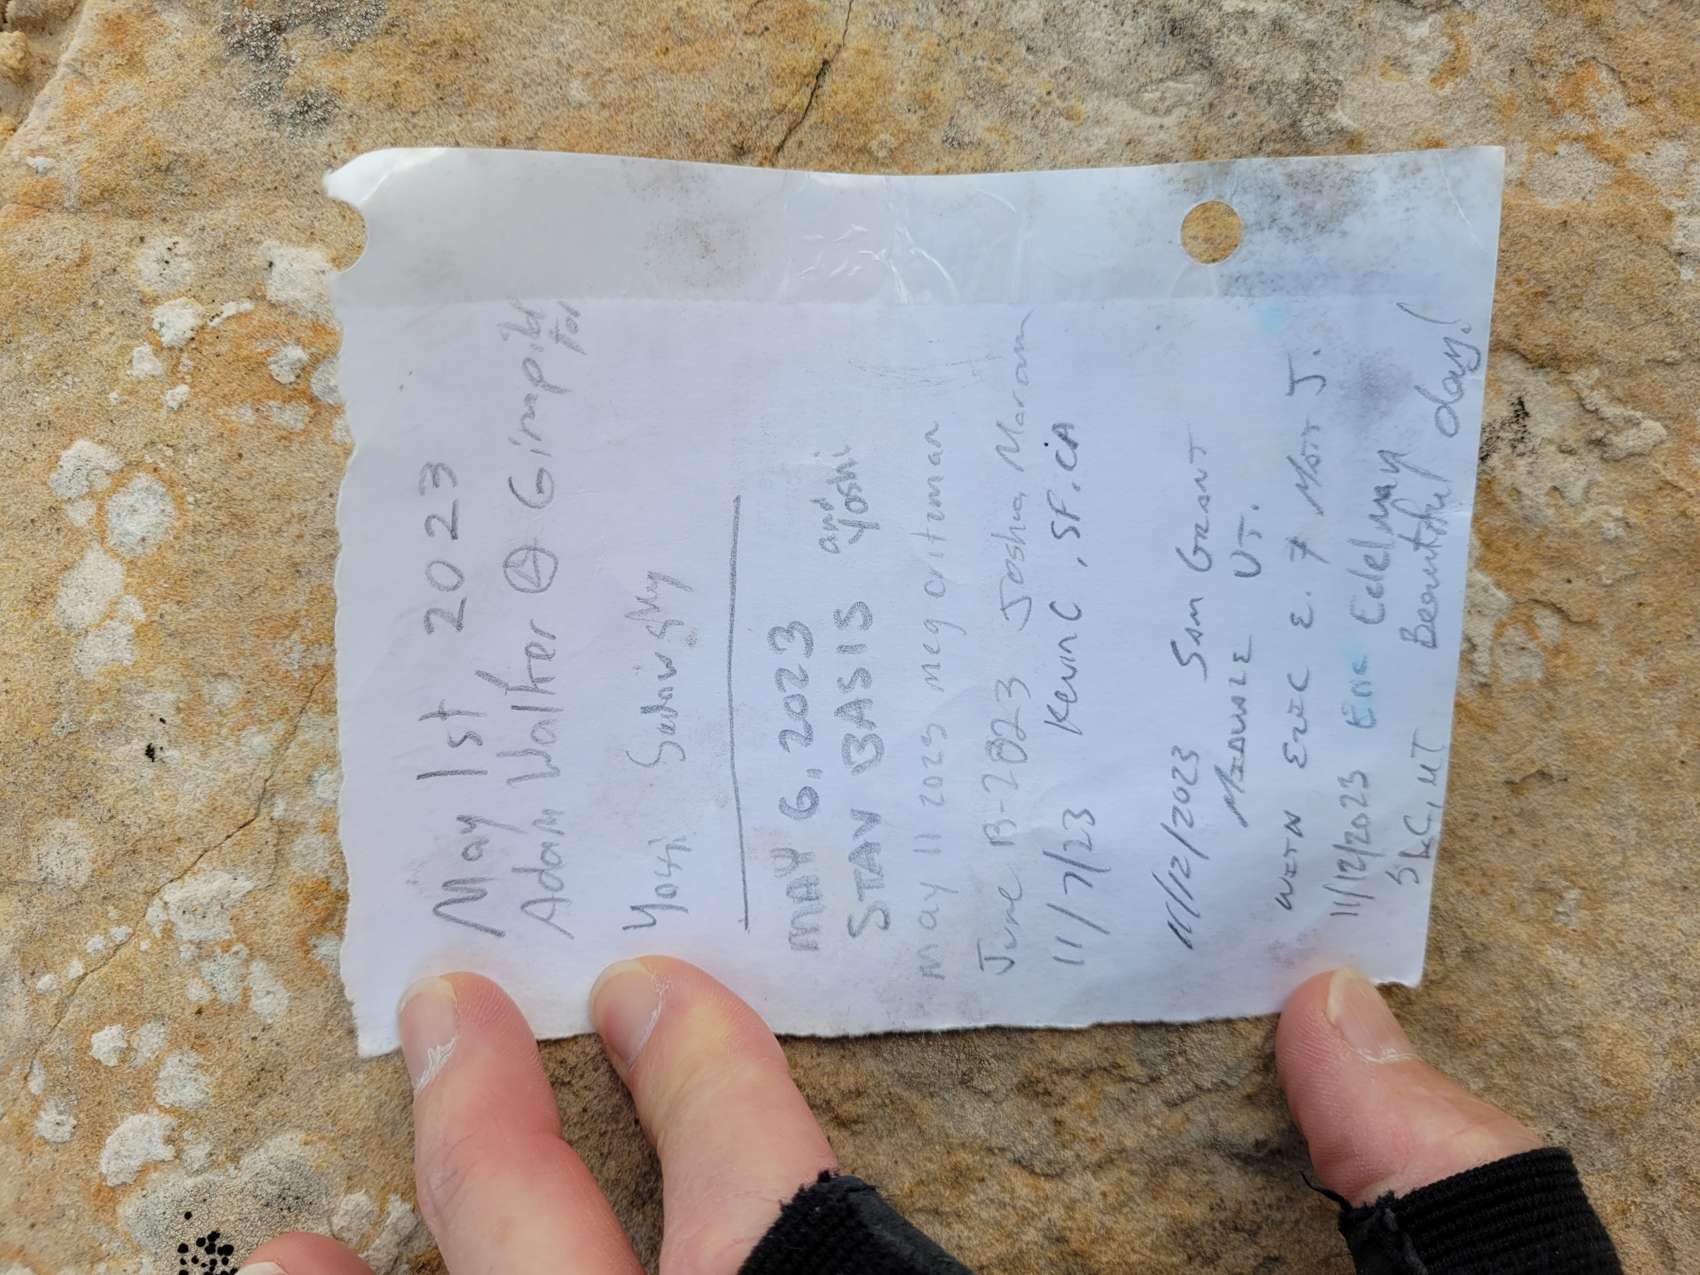 May 1st 2023
Adam Walker Ⓐ Gimpild
for
Yossi
MAY 6, 2023
STAV BASIS and Yoshi
may 11 2023 meg oriteman
June 13-2023 Joshua Maram
11/7/23 Kevin C, SF, CA
11/12/2023 Sam Grant
MIDWAY UT.
WITH ERIC E. & MATT J.
11/12/2023 Eric Edelman
SLC, UT Beautiful day!